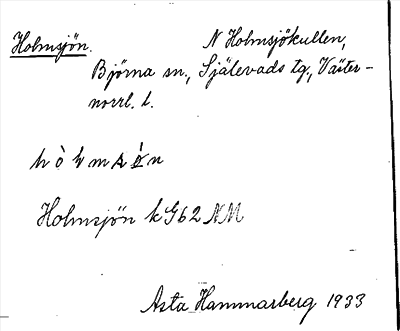 Holmsjön. N Holmsjökullen,
Björna sn., Själevads tg., Väster-
norrl. l.
Holmsjön k G62 NM
Asta Hammarberg 1933